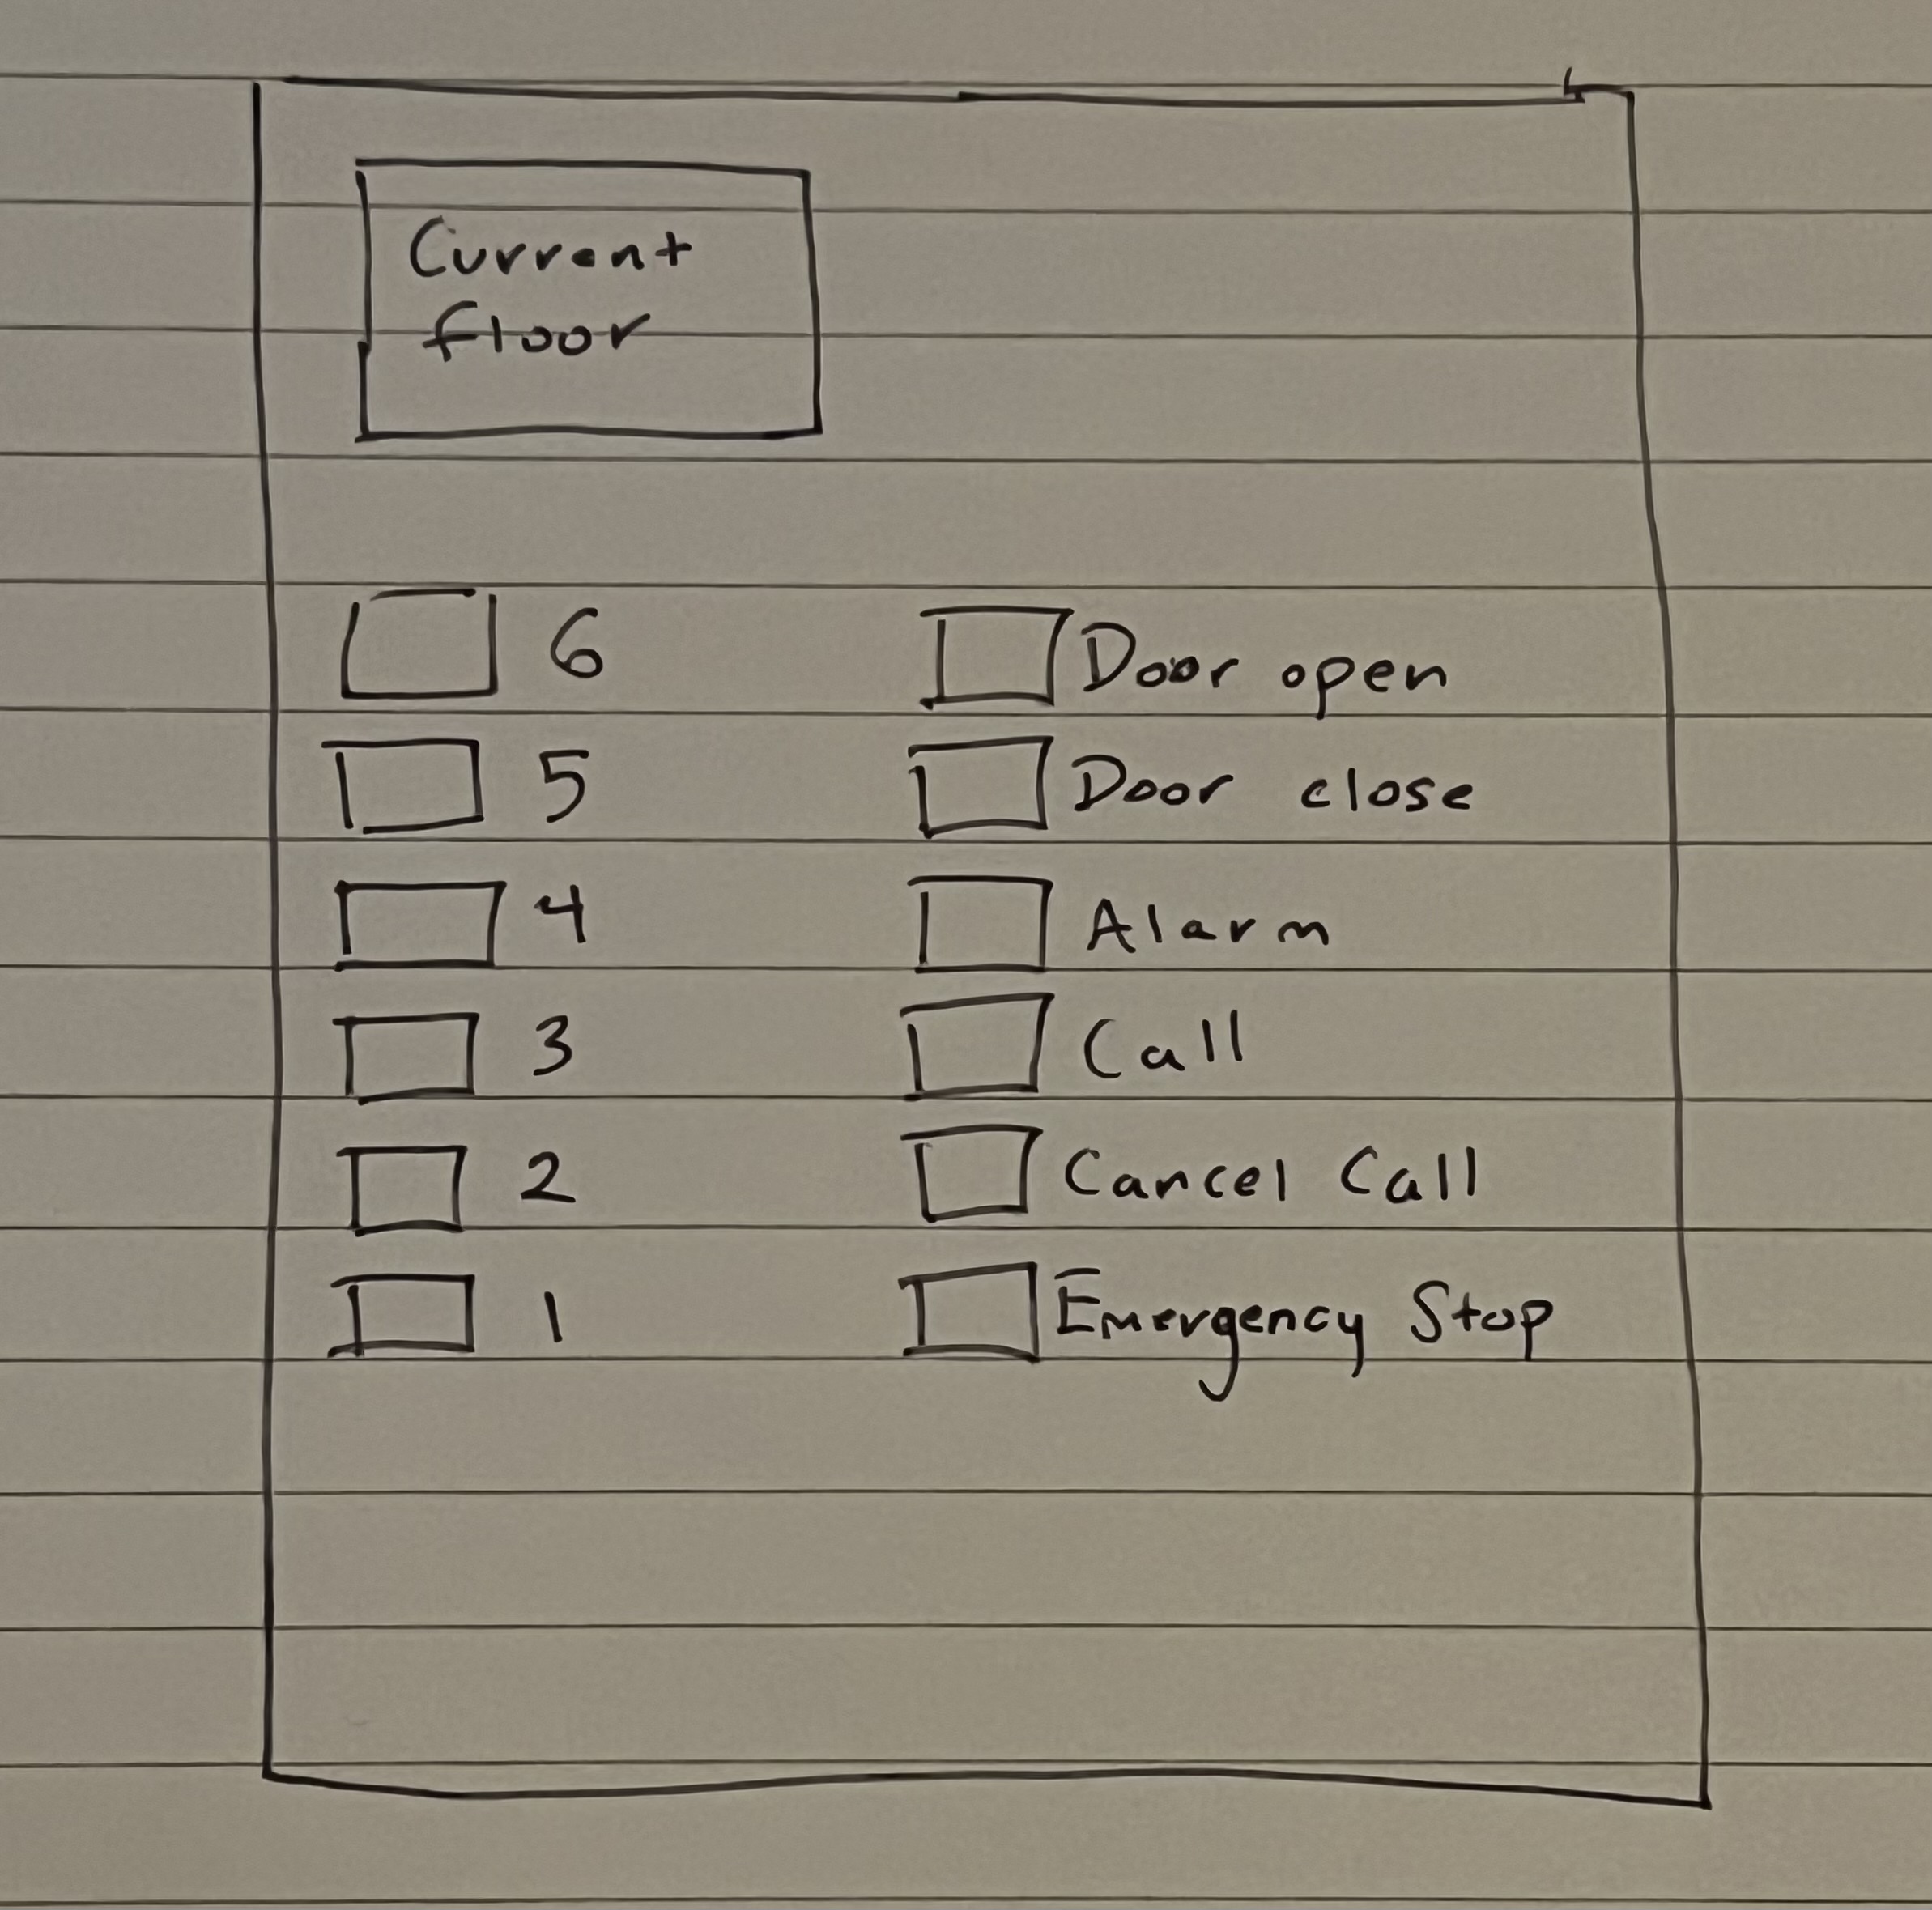 Current
floor
6 Door open
5 Door close
4 Alarm
3 Call
2 Cancel Call
1 Emergency Stop